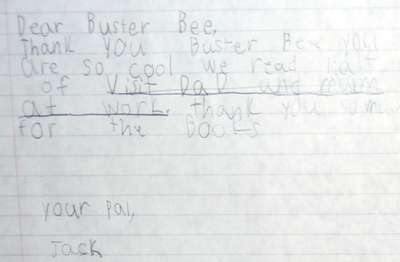 Dear Buster Bee,
Thank you Buster Bee you
are so cool we read half
of Visit Dad and mom
at work. thank you so
for the Books

your pal,
Jack